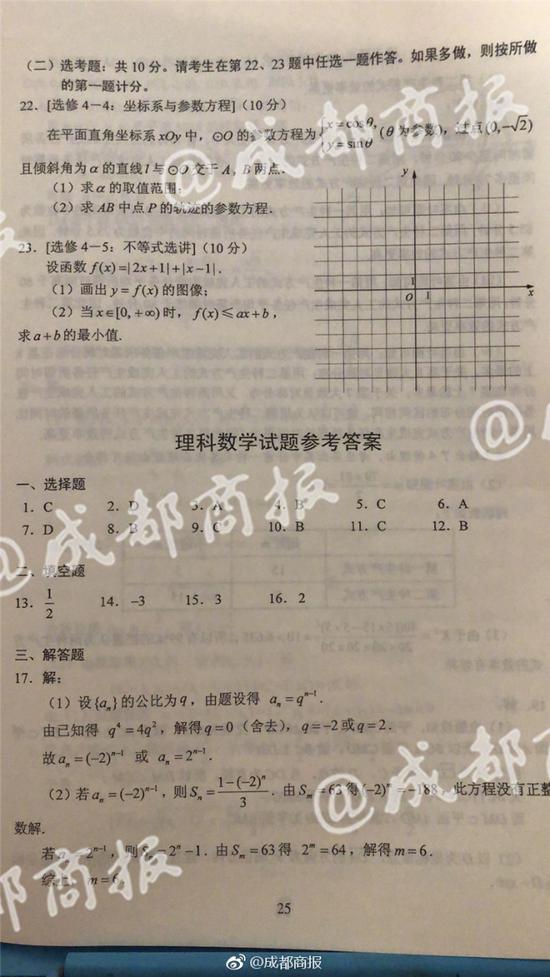 （二）选考题：共 10 分。请考生在第 22、23 题中任选一题作答。如果多做，则按所做
的第一题计分。
22. [选修 4－4：坐标系与参数方程]（10 分）
在平面直角坐标系 xOy 中，⊙O 的参数方程为 { x = cosθ, y = sinθ （θ 为参数），过点 (0, −√2)
且倾斜角为 α 的直线 l 与 ⊙O 交于 A，B 两点．
（1）求 α 的取值范围；
（2）求 AB 中点 P 的轨迹的参数方程．
23. [选修 4－5：不等式选讲]（10 分）
设函数 f(x)=|2x+1|+|x−1|．
（1）画出 y = f(x) 的图像；
（2）当 x∈[0, +∞) 时， f(x)≤ax+b，
求 a+b 的最小值.
y
1
O 1 x
理科数学试题参考答案
一、选择题
1. C 2. D 3. A 4. B 5. C 6. A
7. D 8. B 9. C 10. B 11. C 12. B
二、填空题
13. 1/2 14. −3 15. 3 16. 2
三、解答题
17. 解：
（1）设{aₙ}的公比为 q，由题设得 aₙ = qⁿ⁻¹．
由已知得 q⁴ = 4q²，解得 q = 0（舍去），q = −2 或 q = 2．
故 aₙ = (−2)ⁿ⁻¹ 或 aₙ = 2ⁿ⁻¹．
（2）若 aₙ = (−2)ⁿ⁻¹，则 Sₙ = (1−(−2)ⁿ)/3．由 Sₘ = 63 得 (−2)ᵐ = −188，此方程没有正整
数解．
若 aₙ = 2ⁿ⁻¹，则 Sₙ = 2ⁿ −1．由 Sₘ = 63 得 2ᵐ = 64，解得 m = 6．
综上，m = 6．
25
@成都商报
@成都商报
@成都商报
@成都商报
@成都商报